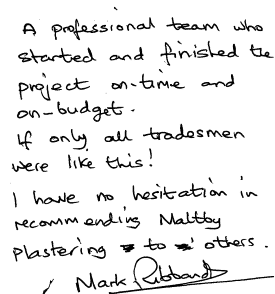 A professional team who
started and finished the
project on-time and
on-budget.
If only all tradesmen
were like this!
I have no hesitation in
recommending Maltby
plastering to others.
Mark Ribband